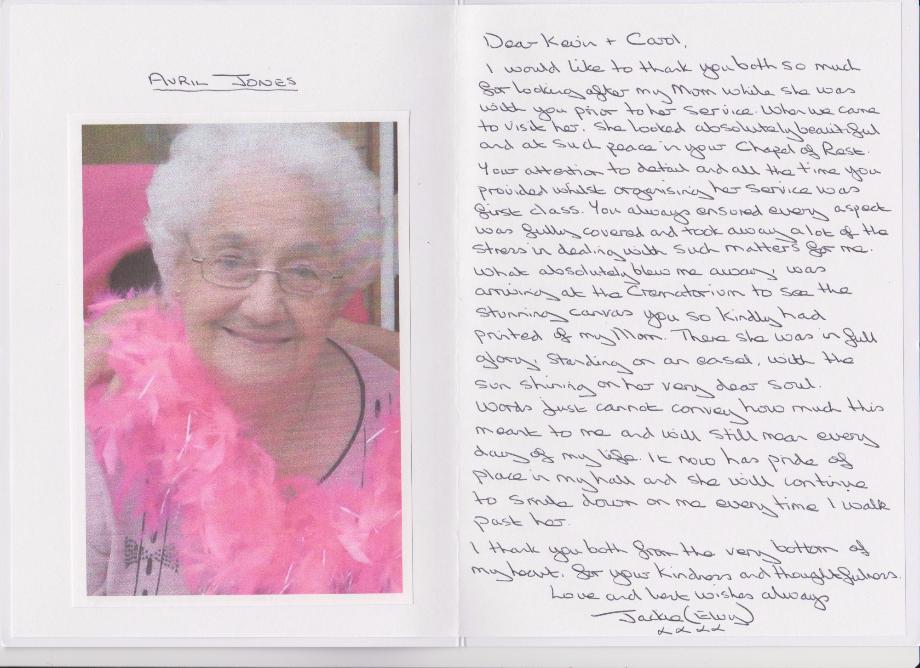 AVRIL JONES
Dear Kevin + Carol,
I would like to thank you both so much
for looking after my Mom while she was
with you prior to her service. When we came
to visit her. She looked absolutely beautiful
and at such peace in your Chapel of Rest.
Your attention to detail and all the time you
provided whilst organising her service was
first class. You always ensured every aspect
was fully covered and took away a lot of the
stress in dealing with such matters for me.
What absolutely blew me away, was
arriving at the Crematorium to see the
stunning canvas you so kindly had
printed of my Mom. There she was in full
glory, standing on an easel, with the
sun shining on her very dear soul.
Words just cannot convey how much this
meant to me and will still mean every
day of my life. It now has pride of
place in my hall and she will continue
to smile down on me every time I walk
past her.
I thank you both from the very bottom of
my heart, for your kindness and thoughtfulness.
Love and best wishes always
Jackie (Elwy)
x x x x